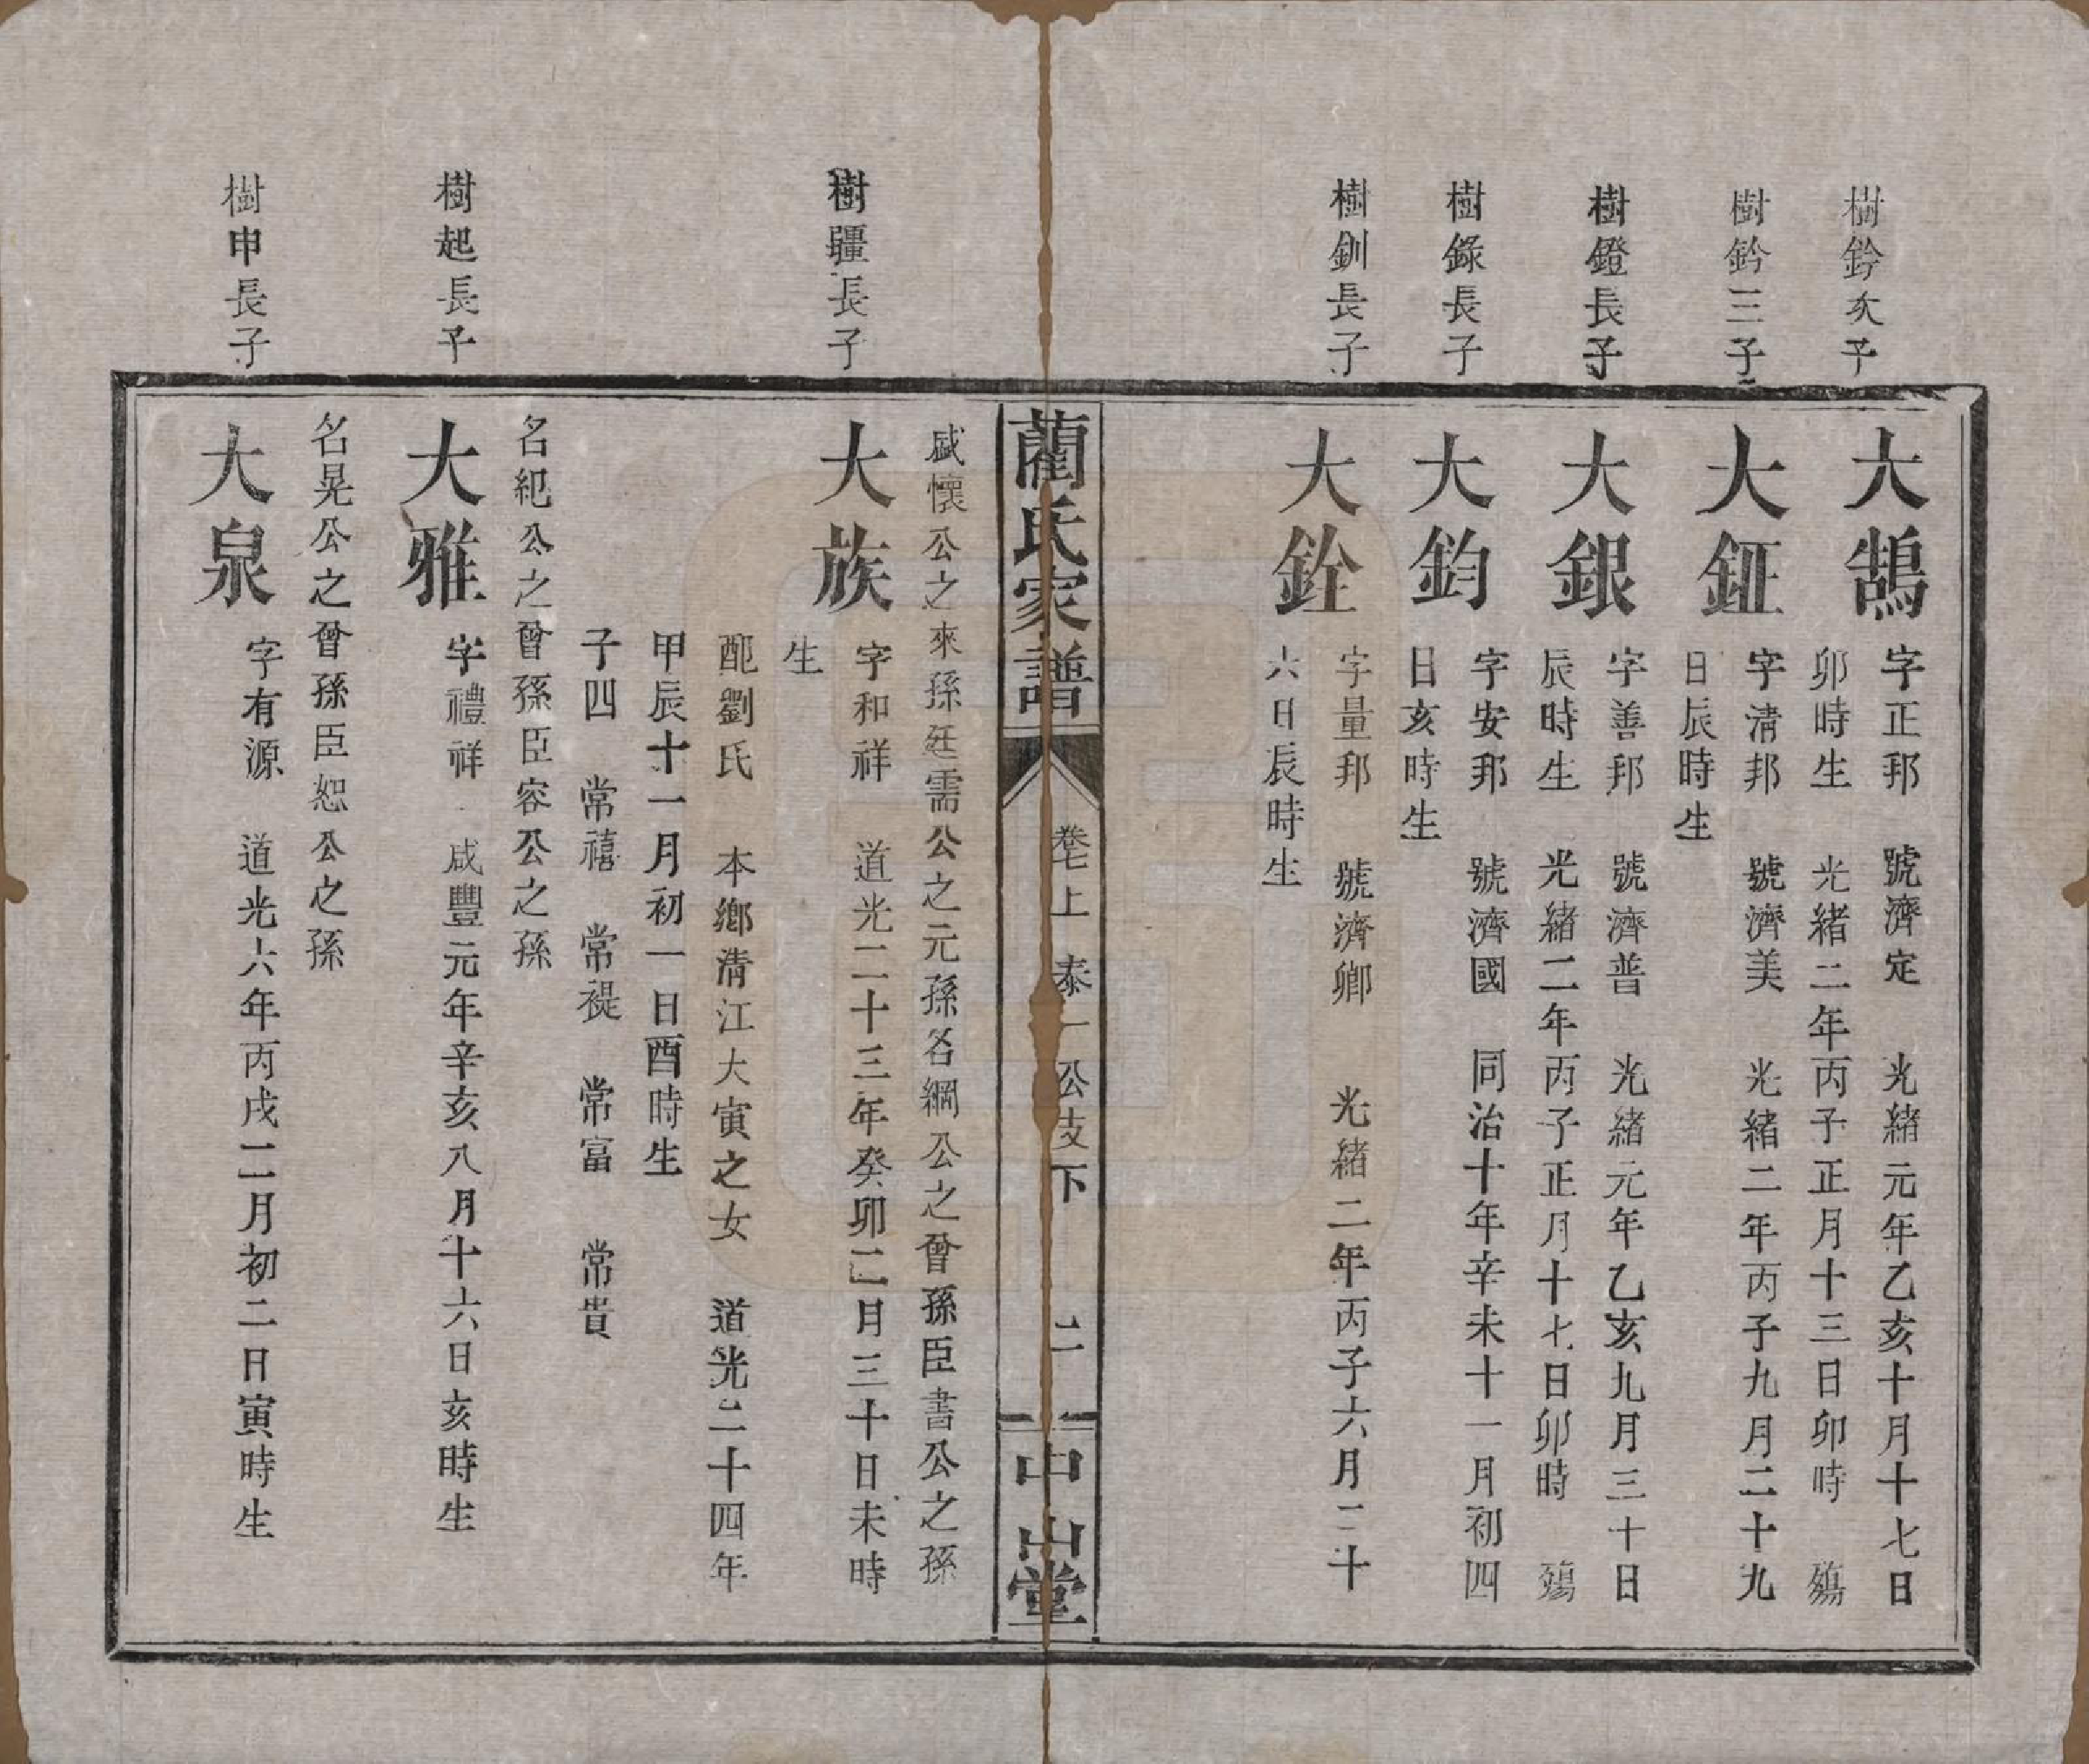 樹鈴次子
大鵠
字正邦 號濟定 光緒元年乙亥十月十七日
卯時生 光緒二年丙子正月十三日卯時 殤
樹鈐三子
大鉦
字清邦 號濟美 光緒二年丙子九月二十九
日辰時生
樹鐙長子
大銀
字善邦 號濟普 光緒元年乙亥九月三十日
辰時生 光緒二年丙子正月十七日卯時 殤
樹錄長子
大鈞
字安邦 號濟國 同治十年辛未十一月初四
日亥時生
樹釧長子
大銓
字量邦 號濟鄉 光緒二年丙子六月二十
六日辰時生
藺氏家譜 卷七上 泰一公支下 二 中山堂
盛懷公之來孫廷需公之元孫名綱公之曾孫臣書公之孫
樹疆長子
大族
字和祥 道光二十三年癸卯二月三十日未時
生
配劉氏 本鄉清江大寅之女 道光二十四年
甲辰十一月初一日酉時生
子四 常禧 常禔 常富 常貴
名紀公之曾孫臣容公之孫
樹起長子
大雅
字禮祥 咸豐元年辛亥八月十六日亥時生
名晃公之曾孫臣恕公之孫
樹申長子
大泉
字有源 道光六年丙戌二月初二日寅時生